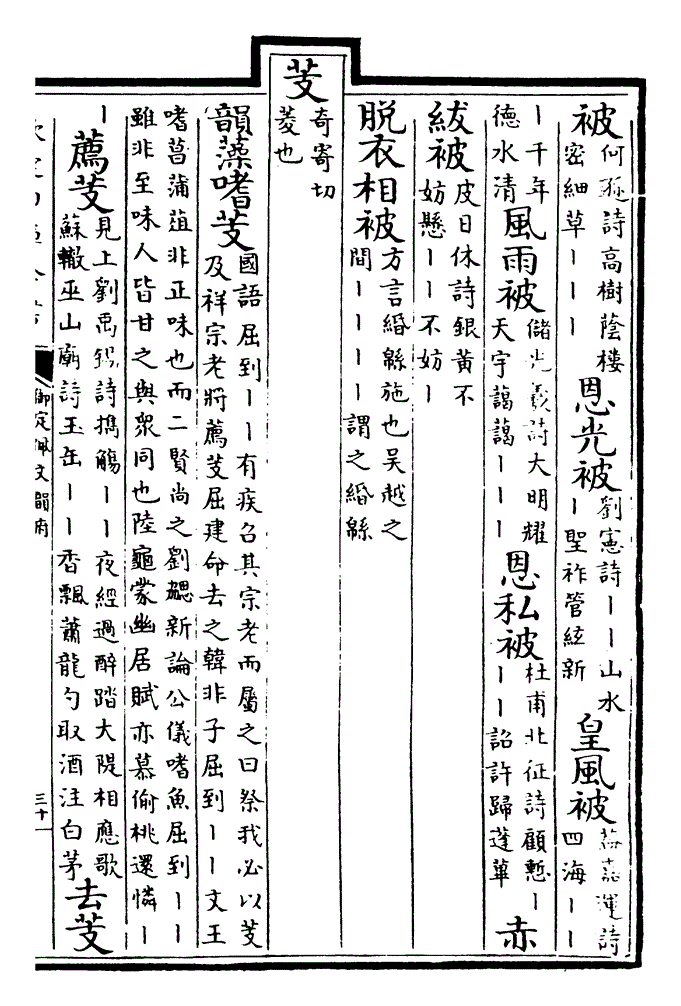 被
何遜詩高樹蔭樓
密細草｜｜｜
恩光被
劉憲詩｜｜山水
｜聖祚管絃新
皇風被
葢嘉運詩
四海｜｜
｜千年
德水清
風雨被
儲光羲詩大明耀
天宇藹藹｜｜｜
恩私被
杜甫北征詩顧慙｜
｜｜詔許歸蓬蓽
赤
紱被
皮日休詩銀黃不
妨懸｜｜不妨｜
脱衣相被
方言緡緜施也吳越之
間｜｜｜｜謂之緡緜
芰
奇寄切
菱也
韻藻嗜芰
國語屈到｜｜有疾召其宗老而屬之曰祭我必以芰
及祥宗老將薦芰屈建命去之韓非子屈到｜｜文王
嗜菖蒲菹非正味也而二賢尚之劉勰新論公儀嗜魚屈到｜｜
雖非至味人皆甘之與衆同也陸龜蒙幽居賦亦慕偷桃還憐｜
｜
薦芰
見上劉禹錫詩擕觴｜｜夜經過醉踏大隄相應歌
蘇轍巫山廟詩玉缶｜｜香飄蕭龍勺取酒注白茅
去芰
御定佩文韻府
三十一